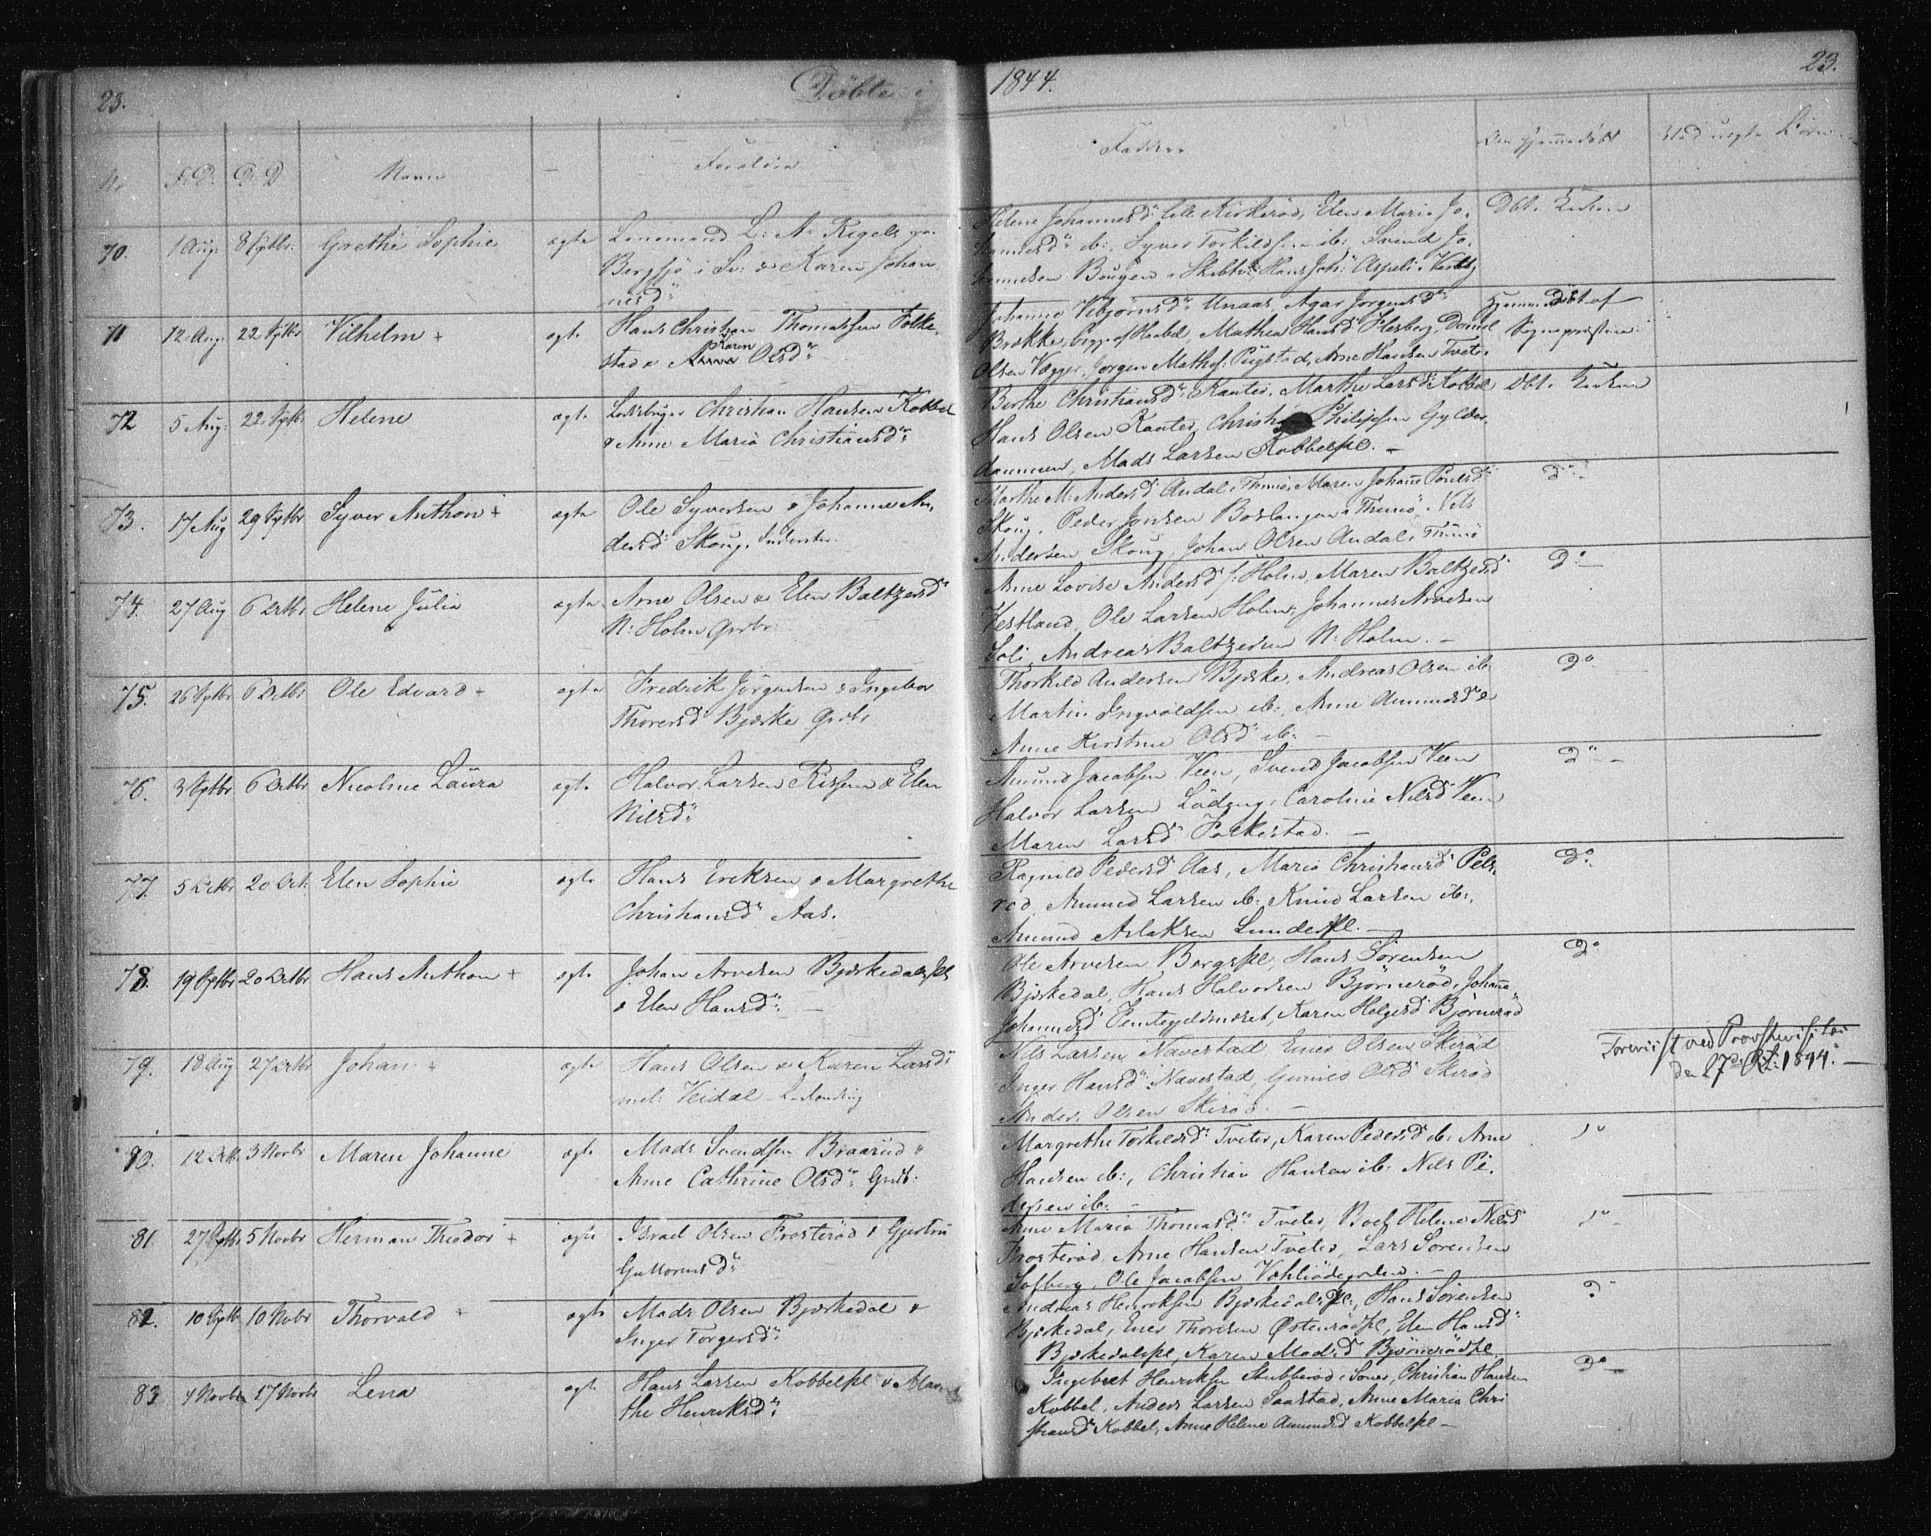 23. Döbte i 1844. 23.
No F.D. D.D Navn Forældre Faddere Om hjemmedöbt
70. 1 Aug. 8 Septbr. Grethe Sophie ægte Lensmand L: N. Rigels
Bergsjö i Sv: & Karen Johan
nesd.
Helene Johannesd. Lille Kirkeröd, Elen Maria Jo-
hannesd. ib:, Syver Torkilds. ib:, Svend Jo-
hannesen Bougen i Skibtv: Hans Joh: Aspeli i
Dbt. Kirken
71 12 Aug. 22 Septbr Vilhelm + ægte Hans Christian Thomassen Folke-
stad & Karen Olsd.
Johanne Vebjörnsd. Unaas, Agar Jörgensd.
Brække, begge af Haabøl, Mathea Hansd. Flesberg, Daniel
Olsen Vægger, Jörgen Maths. Pügstad, Arne Hansen Tveter
Hjemmedöbt af
Sognepræsten
72 5 Aug. 22 Septbr Helene ægte Christian Hansen Kobbel
& Anne Maria Christiansd.
Berthe Christiansd. Kanter, Marthe Larsd. Kobbel
Hans Olsen Kanter, Christian Philipsen Gylder-
dammen, Mads Larsen Kobbelspl. —
Dbt. Kirken
73. 17 Aug 29 Septbr Syver Anthon + ægte Ole Syversen & Johanne An-
dersd. Skoug,
Marthe M. Andersd. Andal i Thrinö, Maren Johane
Skoug, Peder Jensen Boslangen i Thrinö, Nels
Andersen Skoug, Johan Olsen Andal i Thrinö
Do
74. 27 Aug 6 Octbr Helene Julia ægte Arne Olsen & Elen Baltzersd.
N: Holm Grdbr
Anne Lovise Andersd. s: Holm, Maren Baltzersd.
Vestland, Ole Larsen Holm, Johannes Arnesen
Soli, Andreas Baltzersen N: Holm. —
Do —
75. 26 Septbr 6 Octbr Ole Edvard + ægte Fredrik Jörgensen & Ingebor
Thoresd. Bjerke Grdbr
Thorkild Andersen Bjerke, Andreas Olsen ib.
Martin Ingvoldsen ib:, Anne Amundsd.
Anne Kirstine Olsd. ib: —
Do
76. 3 Septbr 6 Octbr Nicoline Laura ægte Halvor Larsen Rissen & Elen
Nilsd.
Amund Jacobsen Veen, Svend Jacobsen Veen
Halvor Larsen Lödeng, Caroline Nilsd. Veen
Maren Larsd. Folkestad. —
Do —
77. 5 Octbr 20 Oct. Elen Sophie ægte Hans Eriksen & Margrethe
Christiansd. Aas.
Ragnild Pedersd. Aas, Maria Christiansd. Pels-
röd, Amund Larsen ib: Knud Larsen ib:,
Amund Aslaksen Lunderpl. —
Do
78. 19 Septbr 20 Octbr Hans Anthon + ægte Johan Arvesen Bjerkedalspl
& Elen Hansd. —
Ole Arvesen Bergspl, Hans Sörensen
Bjerkedal, Hans Halvorsen Björneröd, Johane
Johannesd. Pentegjeldsnæset, Karen Helgesd. Björneröd
Do
79. 18 Aug 27 Octbr Johan + ægte Hans Olsen & Karen Larsd.
mel: Veidal
Nils Larsen Navestad Ener Olsen Skiröd
Inger Hansd. Navestad, Gunild Olsd. Skiröd
Anders Olsen Skiröd. —
Foreviist ved Provstevisitas
den 27de Oct: 1844. —
80. 12 Octbr 3 Novbr Maren Johanne ægte Mads Svendsen Braarud &
Anne Cathrine Olsd. Grdb:
Margrethe Torkildsd. Tveter, Karen Pedersd. ib: Arne
Hansen ib:, Christian Hansen ib: Nils Pe-
dersen ib: —
81. 27 Septbr 5 Novbr Herman Theodor + ægte Israel Olsen Frosteröd & Gjertru
Guttormsd.
Anne Maria Thomasd. Tveter, Boel Helene Nilsd.
Frosteröd, Arne Hansen Tveter, Lars Sörensen
Solberg, Ole Jacobsen
82. 10 Septbr 10 Novbr Thorvald + ægte Mads Olsen Bjerkedal &
Inger Torgersd.
Andreas Henriksen Bjerkedalspl., Hans Sörensen
Bjerkedal, Ener Thoresen Østenrödpl, Elen Hansd.
Bjerkedalspl, Karen Madsd. Björnerödpl.
83 4 Novbr 17 Novbr Lena ægte Hans Larsen Kobbelspl & Mar-
the Henriksd.
Ingebret Henriksen Skubberöd i Soner, Christian Hansen
Kobbel, Anders Larsen Saastad, Anne Maria Chri
stiansd. Kobbel, Anne Helene Amundsd. Kobbelspl —
Do —